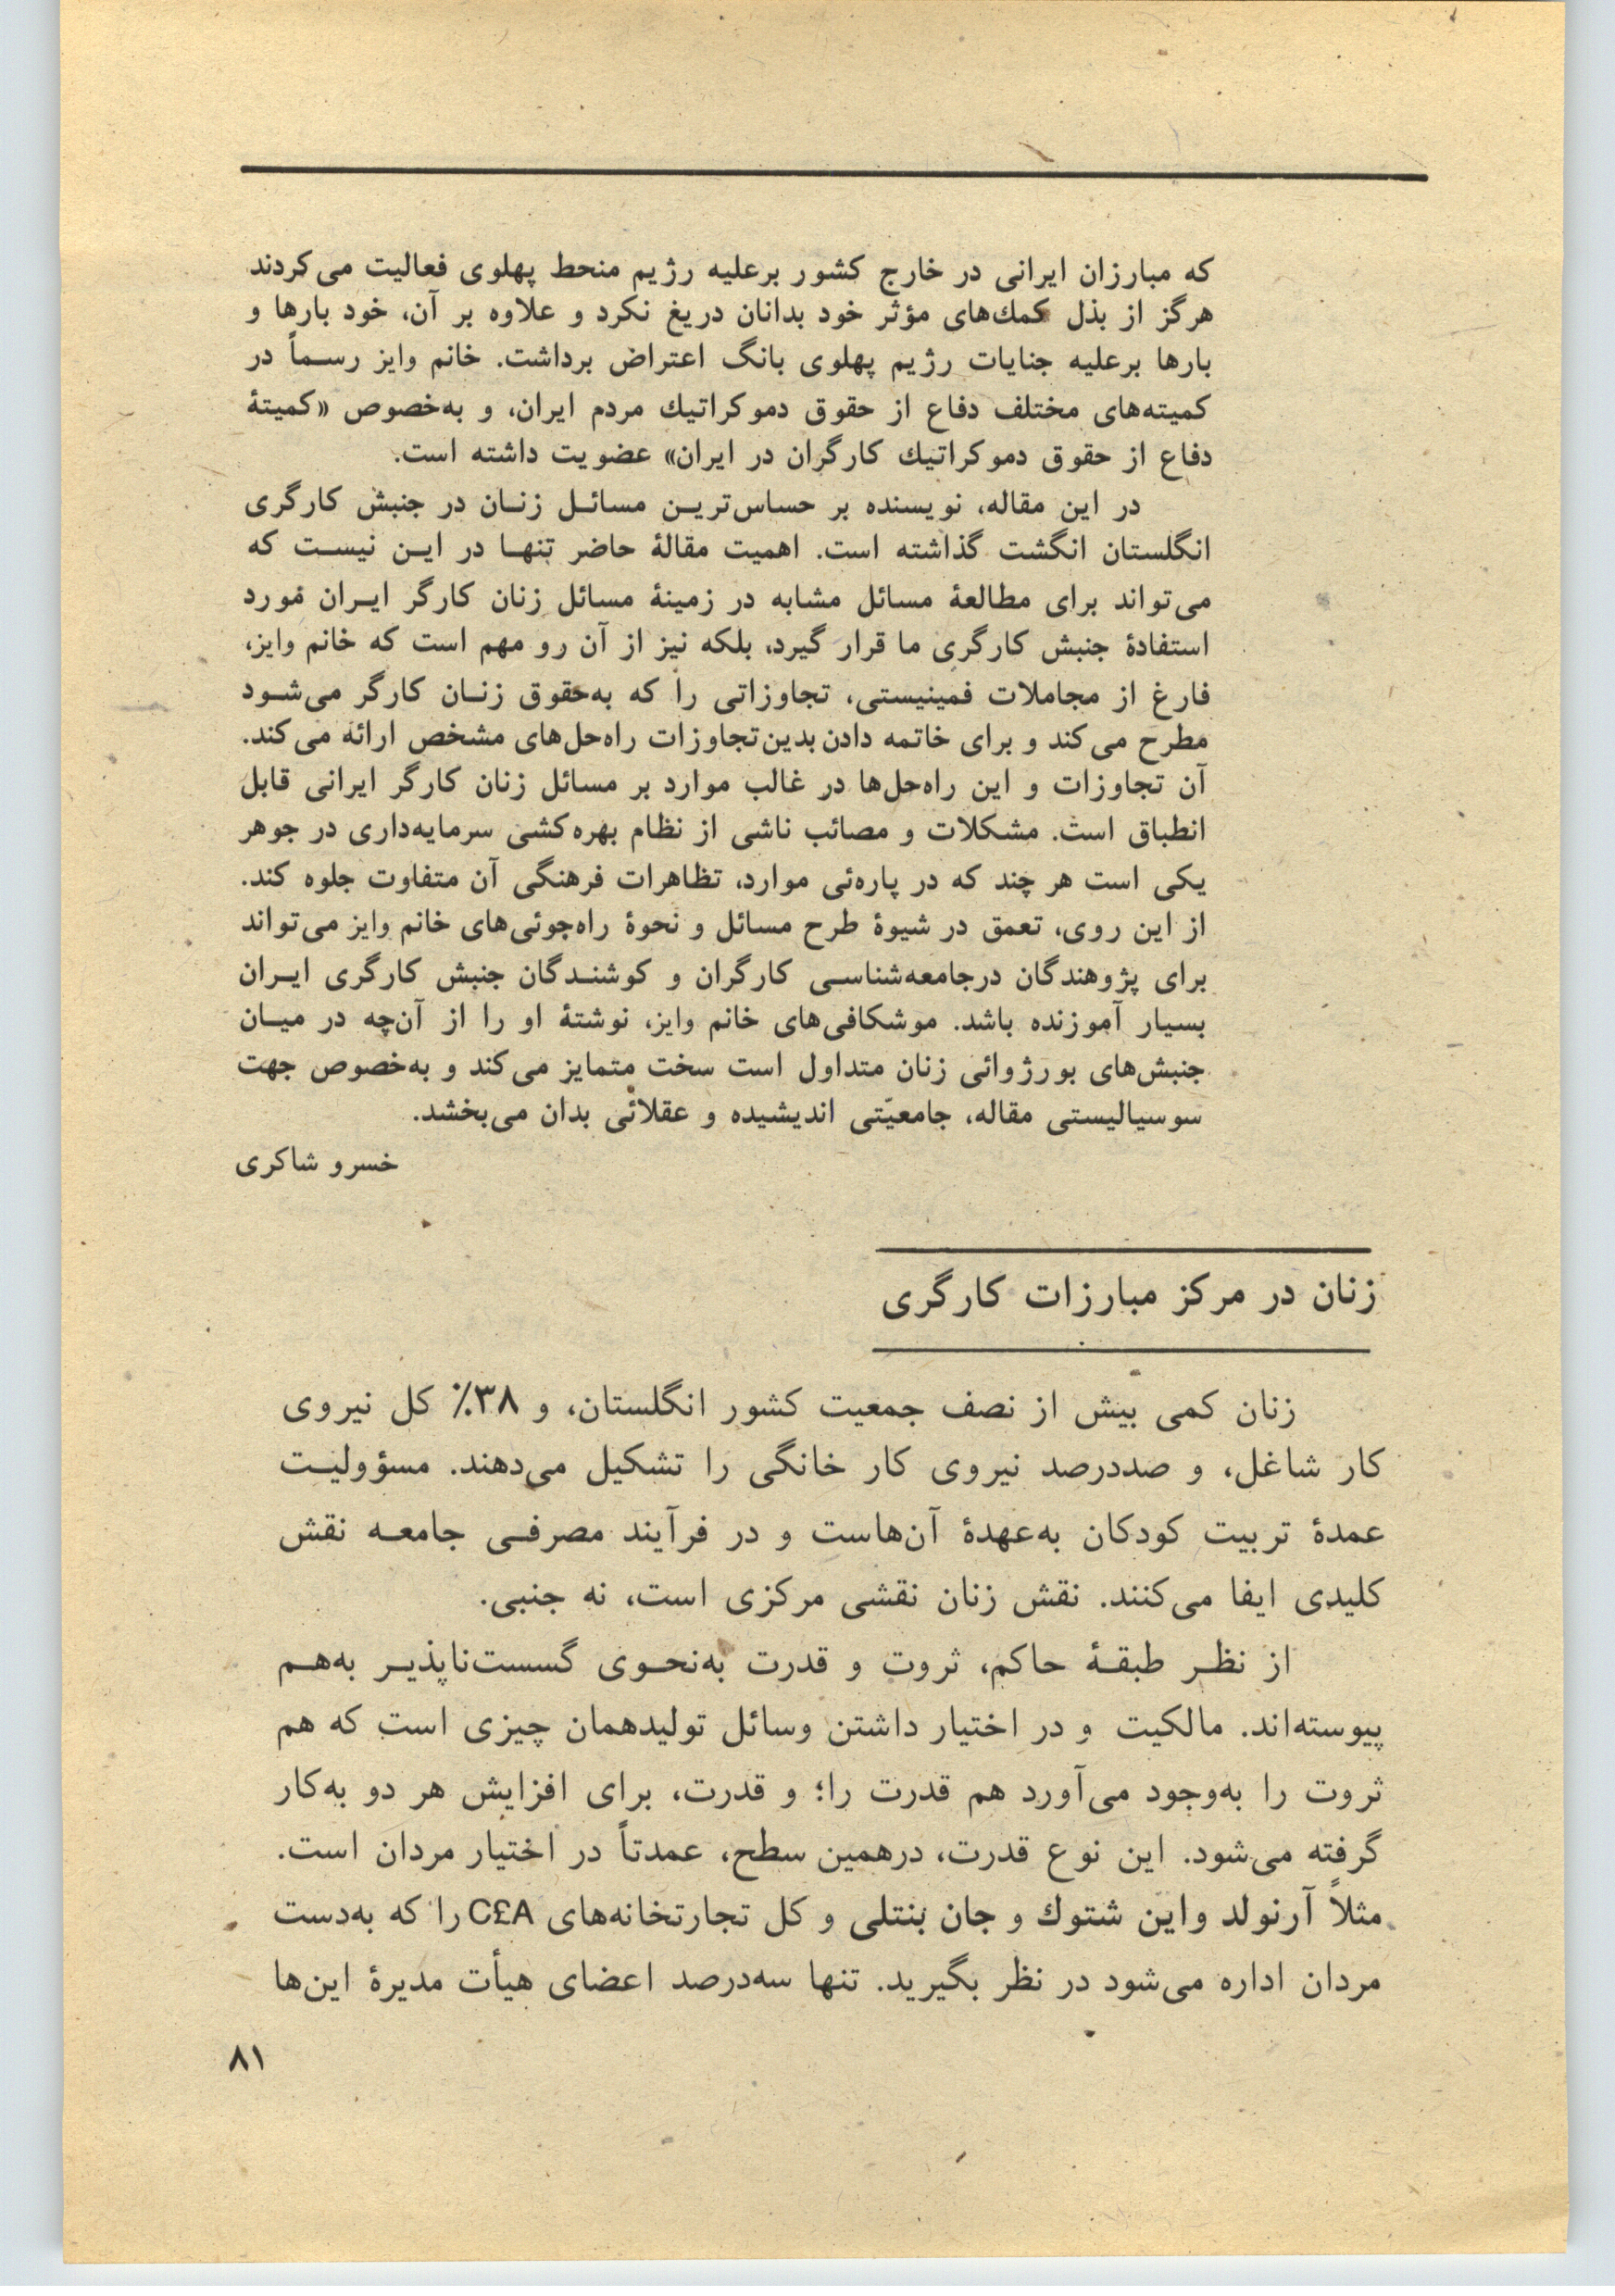 که مبارزان ایرانی در خارج کشور برعلیه رژیم منحط پهلوی فعالیت می‌کردند
هرگز از بذل کمك‌های مؤثر خود بدانان دریغ نکرد و علاوه بر آن، خود بارها و
بارها برعلیه جنایات رژیم پهلوی بانگ اعتراض برداشت. خانم وایز رسماً در
کمیته‌های مختلف دفاع از حقوق دموکراتیك مردم ایران، و به‌خصوص «کمیتهٔ
دفاع از حقوق دموکراتیك کارگران در ایران» عضویت داشته است.
در این مقاله، نویسنده بر حساس‌ترین مسائل زنان در جنبش کارگری
انگلستان انگشت گذاشته است. اهمیت مقالهٔ حاضر تنها در این نیست که
می‌تواند برای مطالعهٔ مسائل مشابه در زمینهٔ مسائل زنان کارگر ایران مورد
استفادهٔ جنبش کارگری ما قرار گیرد، بلکه نیز از آن رو مهم است که خانم وایز،
فارغ از مجاملات فمینیستی، تجاوزاتی را که به‌حقوق زنان کارگر می‌شود
مطرح می‌کند و برای خاتمه دادن بدین‌تجاوزات راه‌حل‌های مشخص ارائه می‌کند.
آن تجاوزات و این راه‌حل‌ها در غالب موارد بر مسائل زنان کارگر ایرانی قابل
انطباق است. مشکلات و مصائب ناشی از نظام بهره‌کشی سرمایه‌داری در جوهر
یکی است هر چند که در پاره‌ئی موارد، تظاهرات فرهنگی آن متفاوت جلوه کند.
از این روی، تعمق در شیوهٔ طرح مسائل و نحوهٔ راه‌جوئی‌های خانم وایز می‌تواند
برای پژوهندگان درجامعه‌شناسی کارگران و کوشندگان جنبش کارگری ایران
بسیار آموزنده باشد. موشکافی‌های خانم وایز، نوشتهٔ او را از آن‌چه در میان
جنبش‌های بورژوائی زنان متداول است سخت متمایز می‌کند و به‌خصوص جهت
سوسیالیستی مقاله، جامعیّتی اندیشیده و عقلائی بدان می‌بخشد.
خسرو شاکری
زنان در مرکز مبارزات کارگری
زنان کمی بیش از نصف جمعیت کشور انگلستان، و ۳۸٪ کل نیروی
کار شاغل، و صددرصد نیروی کار خانگی را تشکیل می‌دهند. مسؤولیت
عمدهٔ تربیت کودکان به‌عهدهٔ آن‌هاست و در فرآیند مصرفی جامعه نقش
کلیدی ایفا می‌کنند. نقش زنان نقشی مرکزی است، نه جنبی.
از نظر طبقهٔ حاکم، ثروت و قدرت به‌نحوی گسست‌ناپذیر به‌هم
پیوسته‌اند. مالکیت و در اختیار داشتن وسائل تولیدهمان چیزی است که هم
ثروت را به‌وجود می‌آورد هم قدرت را؛ و قدرت، برای افزایش هر دو به‌کار
گرفته می‌شود. این نوع قدرت، درهمین سطح، عمدتاً در اختیار مردان است.
مثلاً آرنولد واین شتوك و جان بنتلی و کل تجارتخانه‌های C£A را که به‌دست
مردان اداره می‌شود در نظر بگیرید. تنها سه‌درصد اعضای هیأت مدیرهٔ این‌ها
۸۱